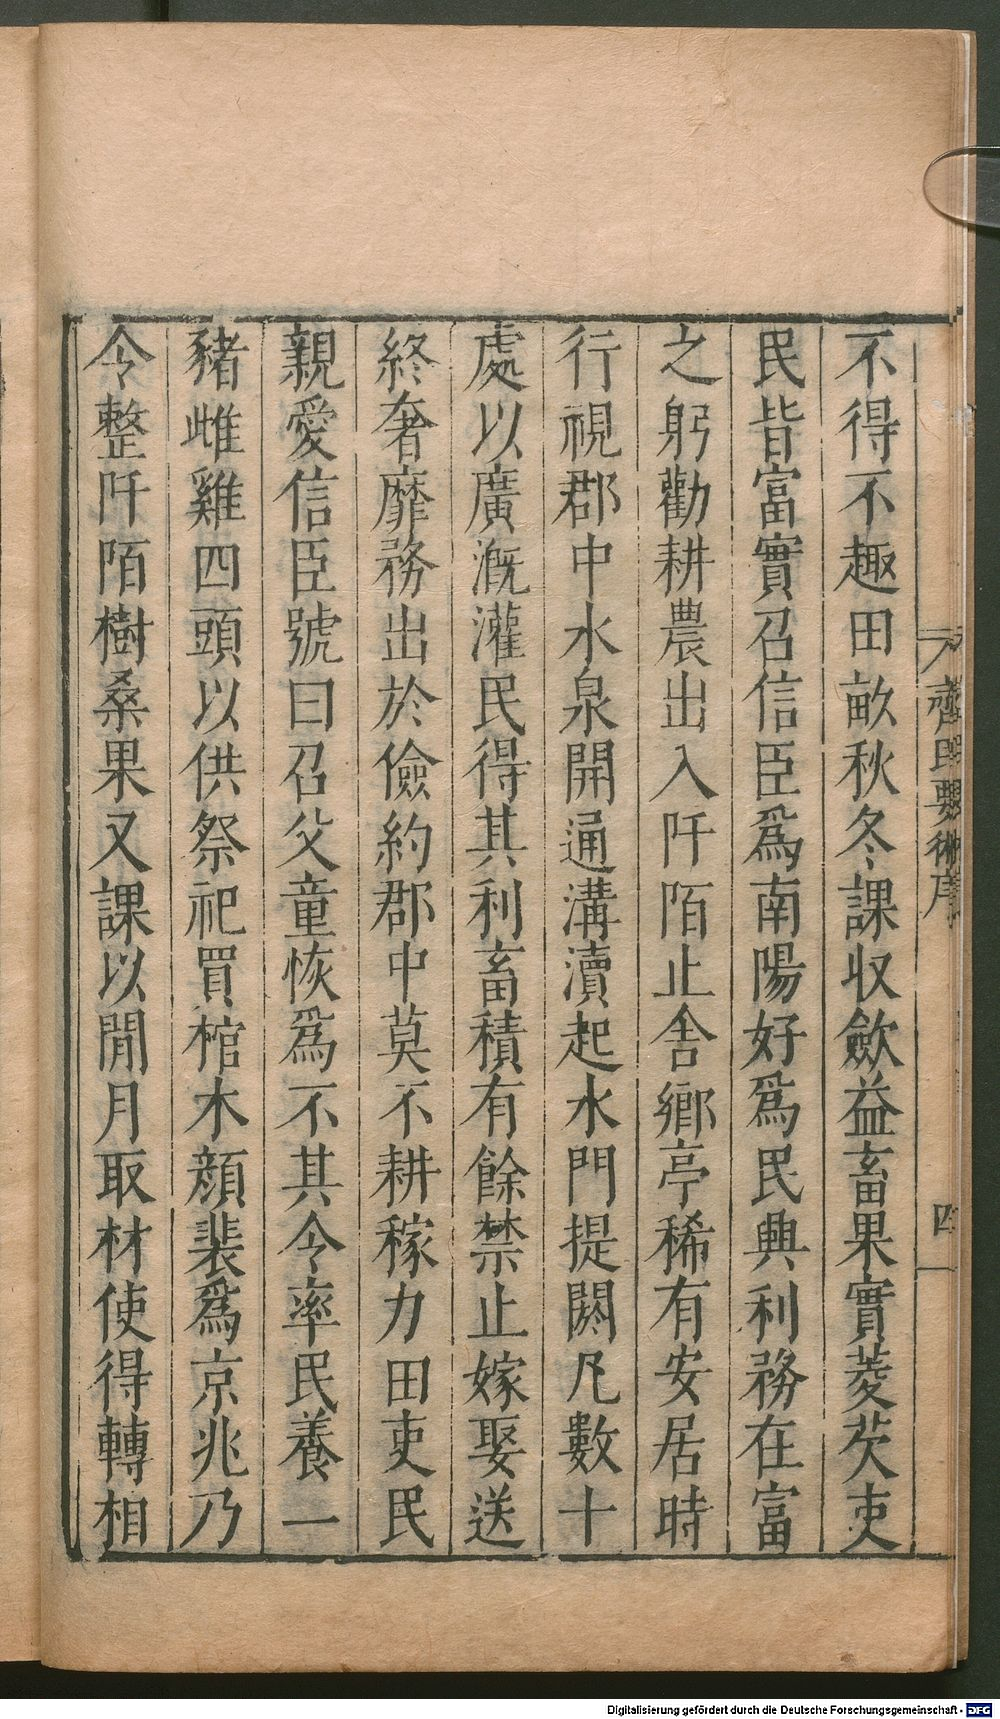 不得不趣田畝秋冬課収歛益畜果實菱芡吏
民皆富實召信臣爲南陽好爲民興利務在富
之躬勸耕農出入阡陌止舍鄉亭稀有安居時
行視郡中水泉開通溝瀆起水門提閼凡數十
處以廣漑灌民得其利畜積有餘禁止嫁娶送
終奢靡務出於儉約郡中莫不耕稼力田吏民
親愛信臣號曰召父童恢爲不其令率民養一
豬雌雞四頭以供祭祀買棺木顏裴爲京兆乃
令整阡陌樹桑果又課以閒月取材使得轉相
齊民要術序
四
Digitalisierung gefördert durch die Deutsche Forschungsgemeinschaft - DFG